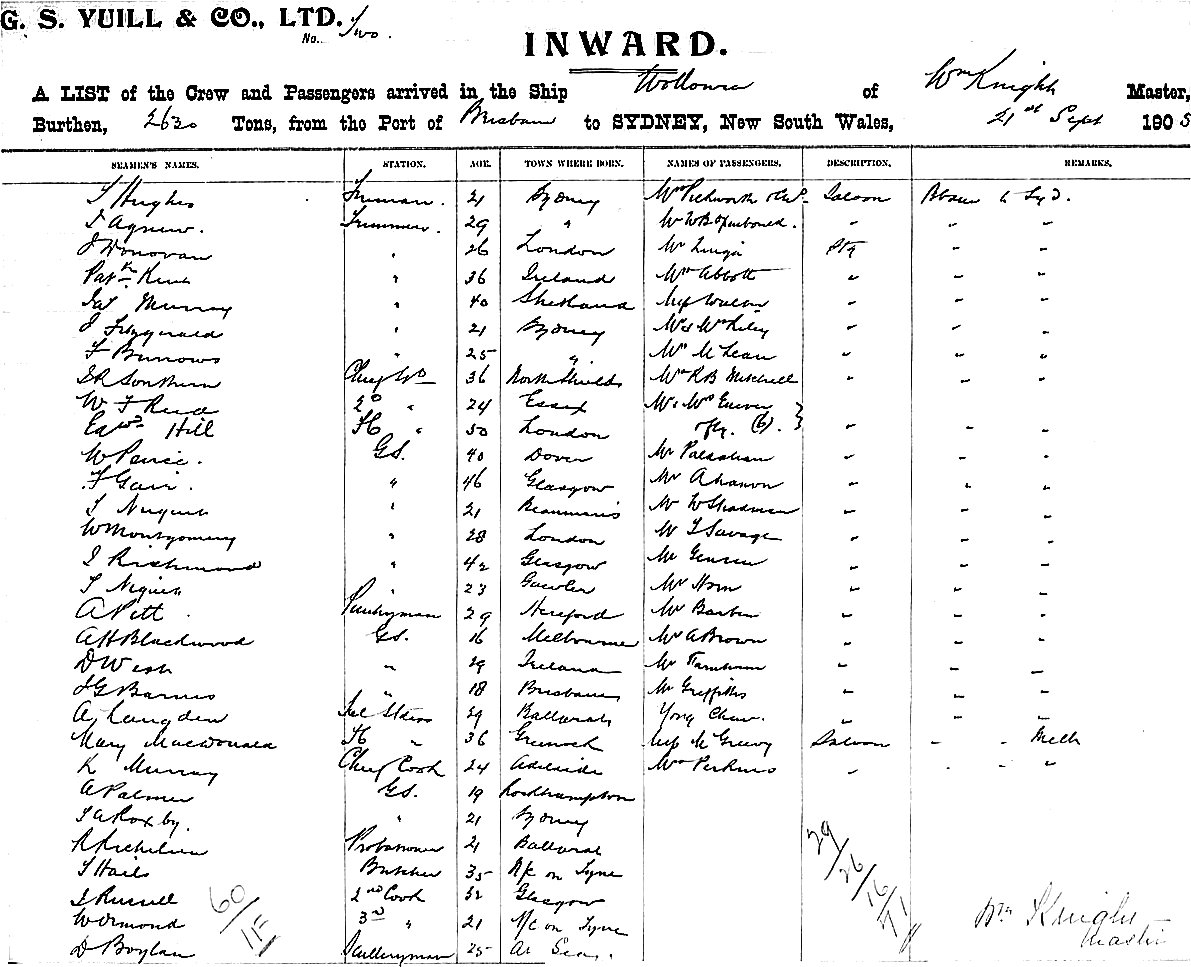 G. S. YUILL & CO., LTD.
No. Two.
INWARD.
A LIST of the Crew and Passengers arrived in the Ship Wollowra of Wm Knight Master,
Burthen, 2630 Tons, from the Port of Brisbane to SYDNEY, New South Wales, 21st Sept 1905
SEAMEN'S NAMES. STATION. AGE. TOWN WHERE BORN. NAMES OF PASSENGERS. DESCRIPTION. REMARKS.
Hughes Fireman. 21 Sydney Mr Pickworth Saloon Bbane to Syd.
Agnew. Trimmer. 29 " " " "
J Donovan " 26 London Mr " "
Patk " 36 Ireland Mrs Abbott " " "
Jas Murray " 40 Shetland Miss " " "
J Fitzgerald " 21 Sydney Mr & Mrs Riley " " "
F Burrows " 25 " Mrs McLean " " "
Southern Chief Std 36 North Shields Mrs R B Mitchell " " "
W J Reed 2d " 24 Essex Mr & Mrs
Edwd Hill " 50 London (6). } " " "
W Peirce. GS. 40 Dover Mr " " "
F Gair. " 46 Glasgow Mr " " "
" 21 Beaumaris Mr W " " "
W Montgomery " 28 London Mr Savage " " "
J Richmond " 42 Glasgow Mr Jensen " " "
" 23 Gawler Mr Horn " " "
A Pett Pantryman 29 Hereford Mr Barber " " "
A H Blackwood GS. 16 Melbourne Mr A Brown " " "
D West " 29 Ireland Mr Farnham " " "
J G Barnes " 18 Brisbane Mr Griffiths " " "
A J Langden 29 Ballarat Yong Chew. " " "
Mary MacDonald " 36 Greenock Miss McGreevy Saloon " " Melb
K Murray Chief Cook 24 Adelaide Mrs Perkins " " " "
A Palmer GS. 19 Rockhampton
Roxby. " 21 Sydney
R Richelieu 21 Ballarat
J Hails Butcher 35 N/c on Tyne
J Russell 2nd Cook 32 Glasgow
W Ormond 3rd " 21 N/c on Tyne
D Boylan Sculleryman 25 At Sea.
60/15
29/26/16/71
Wm Knight
Master